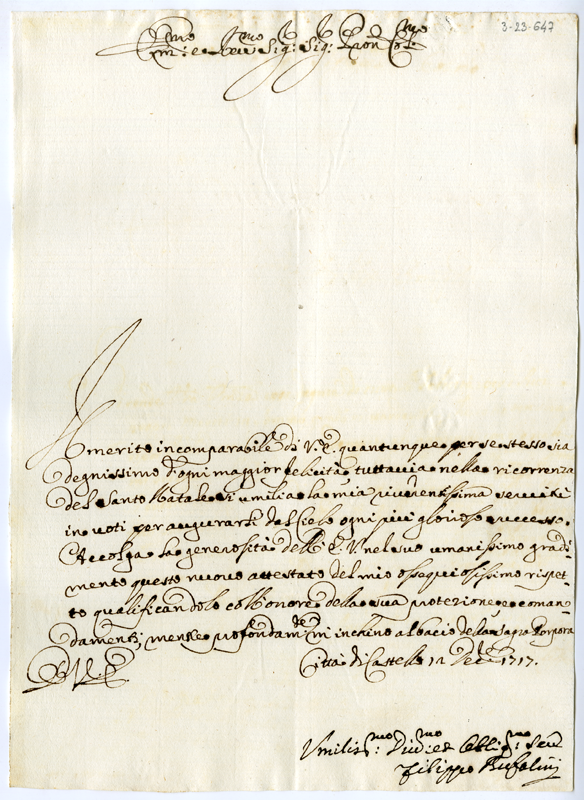 3-23-647
Em:mo e Rev:mo Sig:r Sig:r Pron Col:mo
Il merito incomparabile di V.E. quantunque per se stesso sia
degnissimo d'ogni maggior felicità tuttavia nella ricorrenza
del Santo Natale si umilia la mia riverentissima servitù
in voti per augurarli dal Cielo ogni più glorioso successo.
Accolga la generosità dell'E.V. nel suo umanissimo gradi-
mento questo nuovo attestato del mio ossequiosissimo rispet-
to qualificandolo coll'onore della sua protezione e coman-
damenti, mentre profondam:te m'inchino al bacio della Sagra Porpora
D.V.E.
Città di Castello 12 Dec:e 1717.
Umiliss:mo Div:mo et Oblig:mo Ser:e
Filippo Bufalini